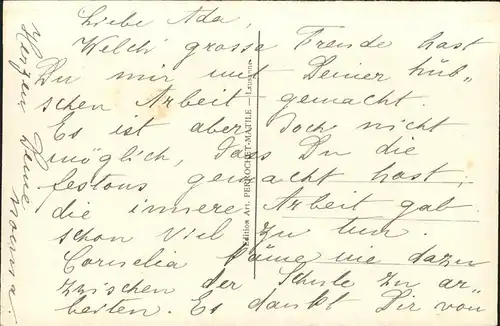 Liebe Ada,
Welch grosse Freude hast
Du mir mit Deiner hüb-
schen Arbeit gemacht.
Es ist aber doch nicht
möglich, dass Du die
festons gemacht hast,
die innere Arbeit gab
schon viel zu tun.
Cornelia käme nie dazu
zwischen der Schule zu ar-
beiten. Es dankt Dir von
Herzen Deine
Edition Art. PERROCHET-MATILE — Lausanne